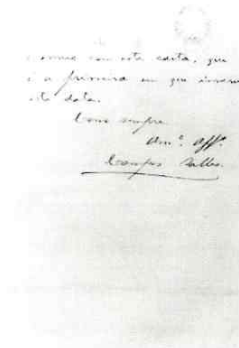 com esta carta, que
é a primeira em que
esta data.
Como sempre
Amº. Affº.
Campos Salles